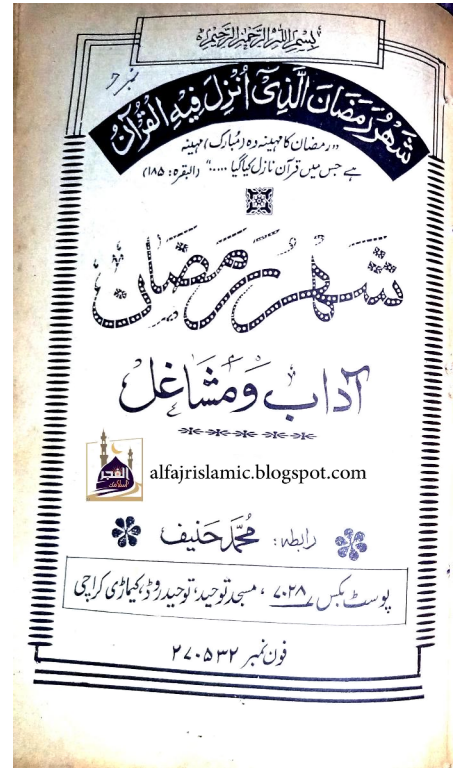 بِسْمِ اللهِ الرَّحْمٰنِ الرَّحِیْمِ
شَهْرُ رَمَضَانَ الَّذِیْ اُنْزِلَ فِیْهِ الْقُرْآنُ
"رمضان کا مہینہ وہ (مُبارک) مہینہ
ہے جس میں قرآن نازل کیا گیا ....." (البقرہ: ۱۸۵)
شَهْرُ رَمَضَان
آداب و مشاغل
الفجر
alfajrislamic.blogspot.com
رابطہ: محمّد حنیف
پوسٹ بکس ۷۰۲۸، مسجد توحید، توحید روڈ، کیماڑی کراچی
فون نمبر ۲۷۰۵۳۲